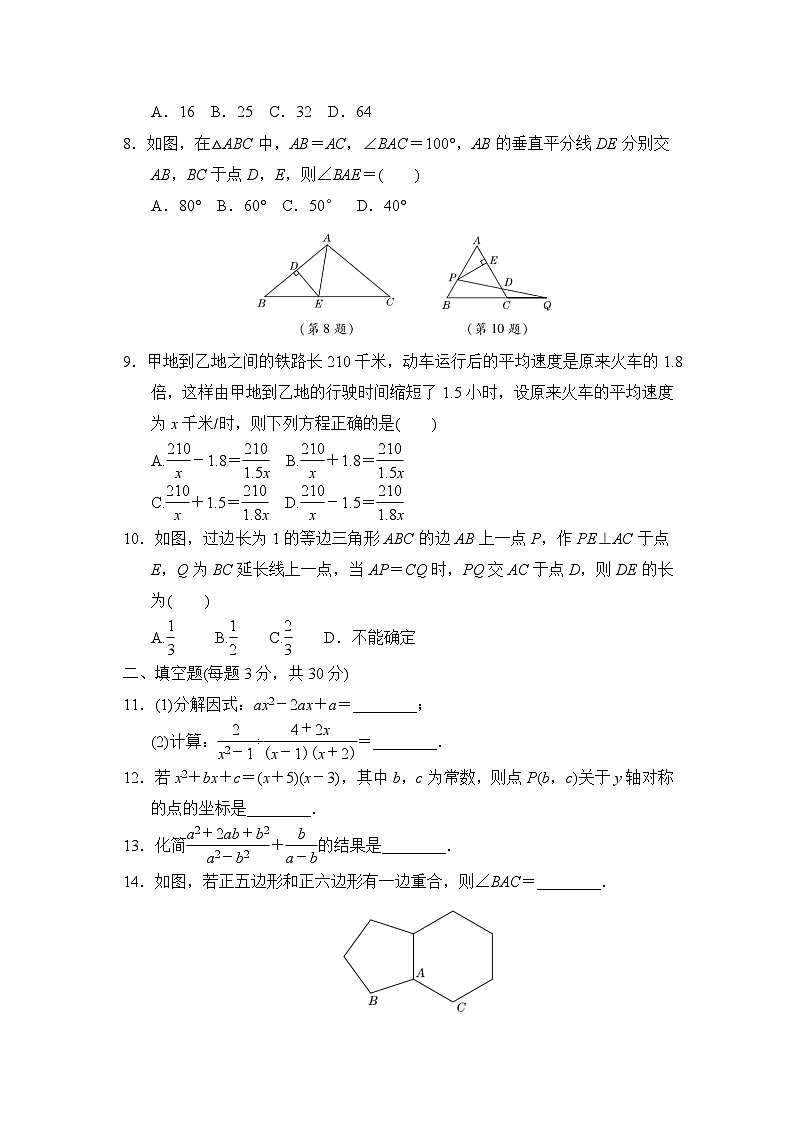 A．16　B．25　C．32　D．64
8．如图，在△ABC 中，AB＝AC，∠BAC＝100°，AB 的垂直平分线 DE 分别交
AB，BC 于点 D，E，则∠BAE＝(　　)
A．80°　B．60°　C．50°　D．40°
A
D
B
E
C
(第 8 题)
A
E
P
D
B
C
Q
(第 10 题)
9．甲地到乙地之间的铁路长 210 千米，动车运行后的平均速度是原来火车的 1.8
倍，这样由甲地到乙地的行驶时间缩短了 1.5 小时，设原来火车的平均速度
为 x 千米/时，则下列方程正确的是(　　)
A.210/x－1.8＝210/1.5x　B.210/x＋1.8＝210/1.5x
C.210/x＋1.5＝210/1.8x　D.210/x－1.5＝210/1.8x
10．如图，过边长为 1 的等边三角形 ABC 的边 AB 上一点 P，作 PE⊥AC 于点
E，Q 为 BC 延长线上一点，当 AP＝CQ 时，PQ 交 AC 于点 D，则 DE 的长
为(　　)
A.1/3　B.1/2　C.2/3　D．不能确定
二、填空题(每题 3 分，共 30 分)
11．(1)分解因式：ax²－2ax＋a＝________；
(2)计算：2/(x²－1)÷(4＋2x)/((x－1)(x＋2))＝________．
12．若 x²＋bx＋c＝(x＋5)(x－3)，其中 b，c 为常数，则点 P(b，c)关于 y 轴对称
的点的坐标是________．
13．化简(a²＋2ab＋b²)/(a²－b²)＋b/(a－b)的结果是________．
14．如图，若正五边形和正六边形有一边重合，则∠BAC＝________．
A
B
C